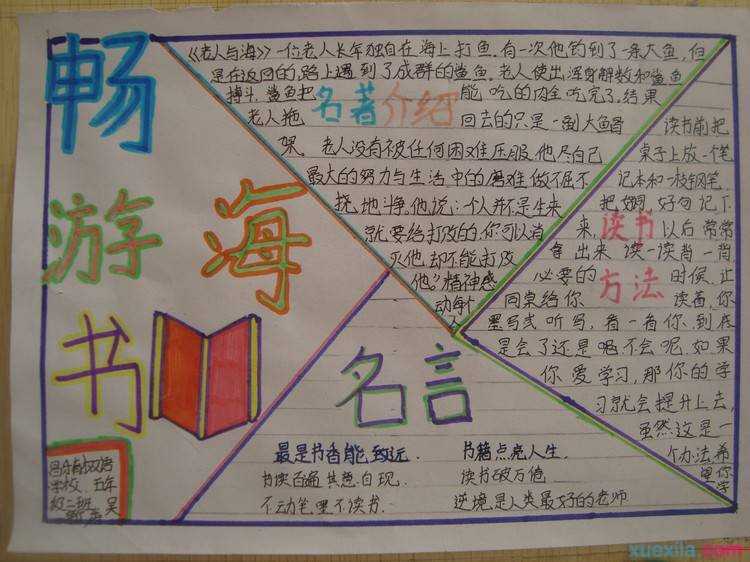 畅
游 海
书
《老人与海》一位老人长年独自在海上打鱼.有一次他钓到了一条大鱼,但
是在返回的路上遇到了成群的鲨鱼.老人使出浑身解数和鲨鱼
搏斗.鲨鱼把 能吃的肉全吃完了.结果
名著介绍
老人拖 回去的只是一副大鱼骨
架。老人没有被任何困难压服,他尽自己
最大的努力与生活中的磨难做不屈不
挠地斗争.他说:"一个人并不是生来
就要给打败的,你可以消
灭他,却不能打败
他"精神感
动每个
人
读书前把
桌子上放一个笔
记本和一枝钢笔.
把 好句记下
来.读书以后常常
拿出来读一读背一背.
必要的 时候,让
读书
方法
同桌给你 读着,你
墨写或听写,看一看你到底
是会了还是 不会呢.如果
你爱学习,那你的学
习就会提升上去,
虽然这是一
个办法希
望你学
名言
最是书香能致远. 书籍点亮人生.
书读百遍其意自现. 读书破万卷
不动笔墨不读书. 逆境是人类最好的老师
学校、五年
级二班 吴
xuexila.com